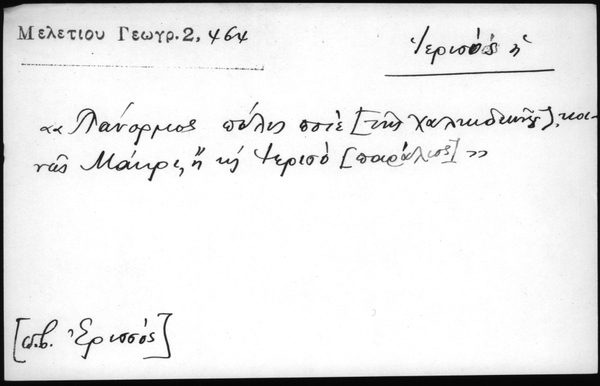 Μελετίου Γεωγρ. 2, 464
Ἱερισός ἡ
«Πάνορμος πόλις ποτὲ [τῆς Χαλκιδικῆς], κοι-
νῶς Μάκρι, ἢ κὴ Ἱερισὸ [παράλιος]»
[πβ. Ἐρισσός]